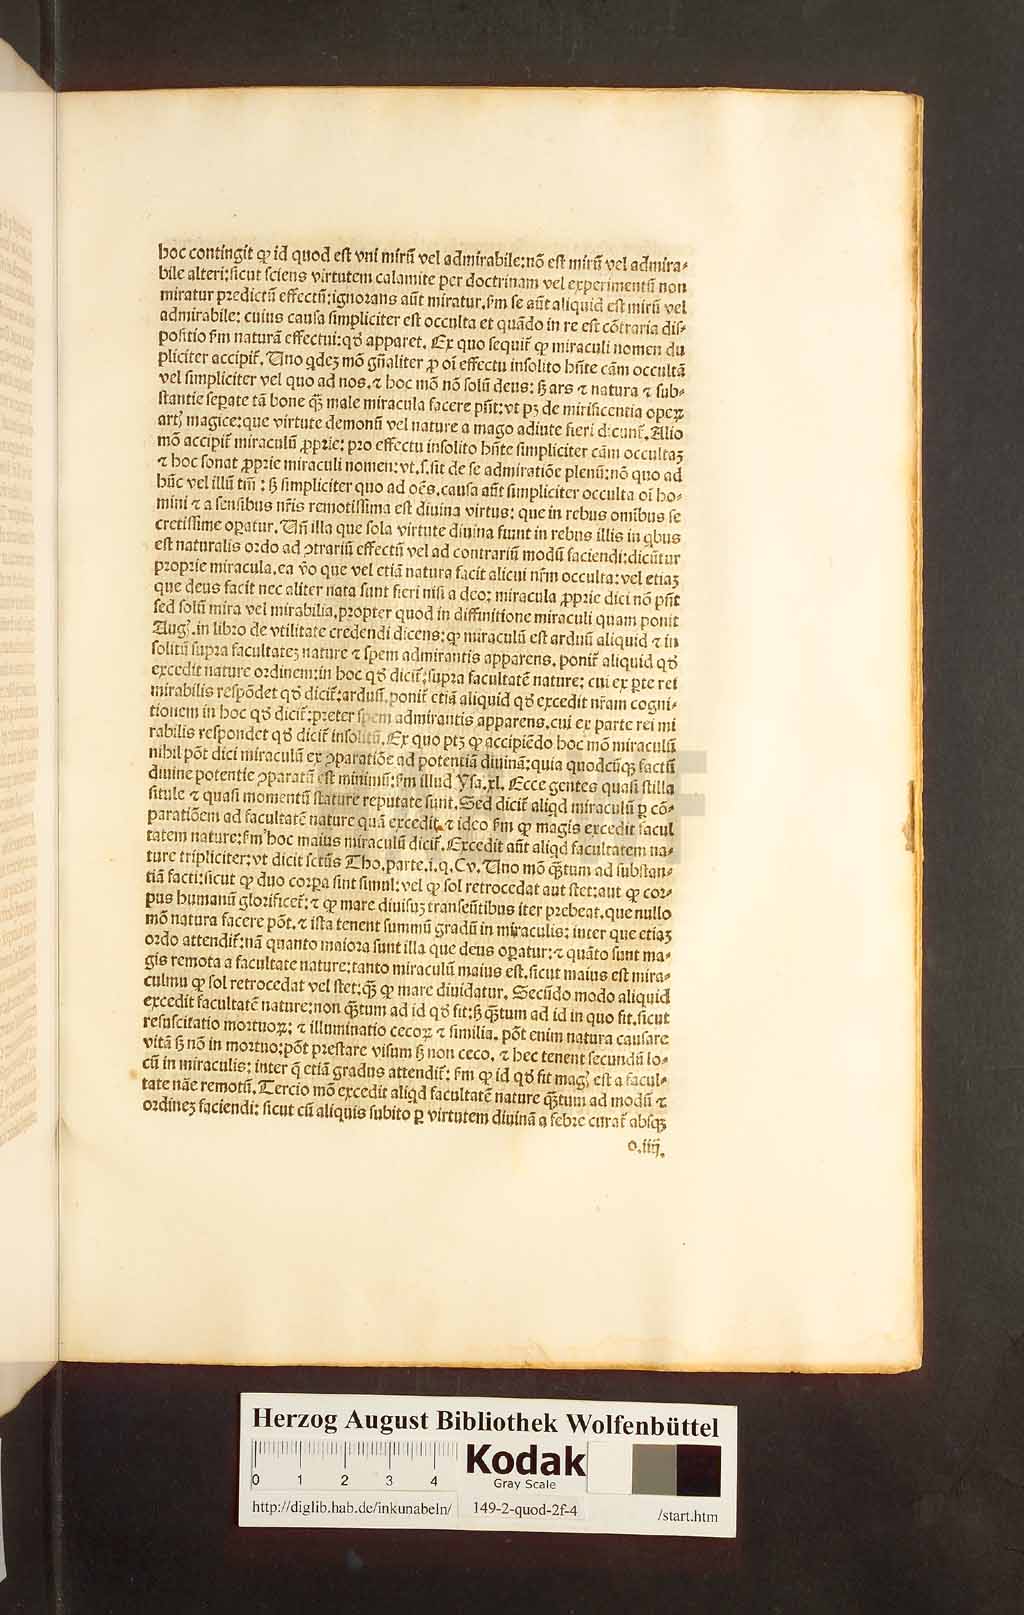 hoc contingit ꝙ id quod est vni mirū vel admirabile:nō est mirū vel admira⸗
bile alteri:sicut sciens virtutem calamite per doctrinam vel experimentū non
miratur predictū effectū:ignorans aūt miratur.ẜm se aūt aliquid est mirū vel
admirabile: cuius causa simpliciter est occulta et quādo in re est cōtraria dis⸗
positio ẜm naturā effectui:qđ apparet. Ex quo sequit̄ ꝙ miraculi nomen du
pliciter accipit̄. Uno qdeꝫ mō gn̄aliter ꝓ oī effectu insolito hn̄te cām occultā
vel simpliciter vel quo ad nos.⁊ hoc mō nō solū deus: ꜩ ars ⁊ natura ⁊ sub⸗
stantie seꝑate tā bone qꝫ̄ male miracula facere pn̄t:vt pꝫ de mirificentia oꝑeꝝ
artꝭ magice:que virtute demonū vel nature a mago adiute fieri dicunt̄. Alio
mō accipit̄ miraculū ꝓprie: pro effectu insolito hn̄te simpliciter cām occultaꝫ
⁊ hoc sonat ꝓprie miraculi nomen:vt.s.sit de se admiratiōe plenū:nō quo ad
hūc vel illū tm̄ : ꜩ simpliciter quo ad oēs.causa aūt simpliciter occulta oī ho⸗
mini ⁊ a sensibus nr̄is remotissima est diuina virtus: que in rebus omībus se
cretissime oꝑatur. Un̄ illa que sola virtute diuina fiunt in rebus illis in qbus
est naturalis ordo ad ꝯtrariū effectū vel ad contrariū modū faciendi:dicūtur
proprie miracula.ea v̄o que vel etiā natura facit alicui nr̄m occulta:vel etiaꝫ
que deus facit nec aliter nata sunt fieri nisi a deo: miracula ꝓprie dici nō pn̄t
sed solū mira vel mirabilia.propter quod in diffinitione miraculi quam ponit
Augꝭ.in libro de vtilitate credendi dicens:ꝙ miraculū est arduū aliquid ⁊ in
solitū supra facultateꝫ nature ⁊ spem admirantis apparens. ponit̄ aliquid qđ
excedit nature ordinem:in hoc qđ dicit̄:supra facultatē nature: cui ex ꝑte rei
mirabilis respōdet qđ dicit̄:arduū.ponit̄ etiā aliquid qđ excedit nr̄am cogni⸗
tionem in hoc qđ dicit̄:preter spem admirantis apparens.cui ex parte rei mi
rabilis respondet qđ dicit̄ insolitū.Ex quo ptꝫ ꝙ accipiēdo hoc mō miraculū
nihil pōt dici miraculū ex ꝯparatiōe ad potentiā diuinā:quia quodcūqꝫ factū
diuine potentie ꝯparatū est minimū:ẜm illud Ysa.xl. Ecce gentes quasi stilla
situle ⁊ quasi momentū stature reputate sunt. Sed dicit̄ aliqd miraculū ꝑ cō⸗
paratiōem ad facultatē nature quā excedit.⁊ ideo ẜm ꝙ magis excedit facul
tatem nature:ẜm hoc maius miraculū dicit̄. Excedit aūt aliqd facultatem na⸗
ture tripliciter:vt dicit sctūs Tho.parte.i.q.Cv. Uno mō qꝫ̄tum ad substan⸗
tiā facti:sicut ꝙ duo corpa sint simul:vel ꝙ sol retrocedat aut stet:aut ꝙ cor⸗
pus humanū glorificet̄:⁊ ꝙ mare diuisuꝫ transeūtibus iter prebeat.que nullo
mō natura facere pōt.⁊ ista tenent summū gradū in miraculis: inter que etiaꝫ
ordo attendit̄:nā quanto maiora sunt illa que deus oꝑatur:⁊ quāto sunt ma⸗
gis remota a facultate nature:tanto miraculū maius est.sicut maius est mira⸗
culmu ꝙ sol retrocedat vel stet:qꝫ̄ ꝙ mare diuidatur. Secūdo modo aliquid
excedit facultatē nature:non qꝫ̄tum ad id qđ fit:ꜩ qꝫ̄tum ad id in quo fit.sicut
resuscitatio mortuoꝝ: ⁊ illuminatio cecoꝝ ⁊ similia. pōt enim natura causare
vitā ꜩ nō in mortuo:pōt prestare visum ꜩ non ceco. ⁊ hec tenent secundū lo⸗
cū in miraculis: inter q̄ etiā gradus attendit̄: ẜm ꝙ id qđ fit magꝭ est a facul⸗
tate nāe remotū. Tercio mō excedit aliqd facultatē nature qꝫ̄tum ad modū ⁊
ordineꝫ faciendi: sicut cū aliquis subito ꝑ virtutem diuinā a febre curat̄ absqꝫ
o.iiij.
Herzog August Bibliothek Wolfenbüttel
0 1 2 3 4
Kodak
Gray Scale
http://diglib.hab.de/inkunabeln/ 149-2-quod-2f-4 /start.htm